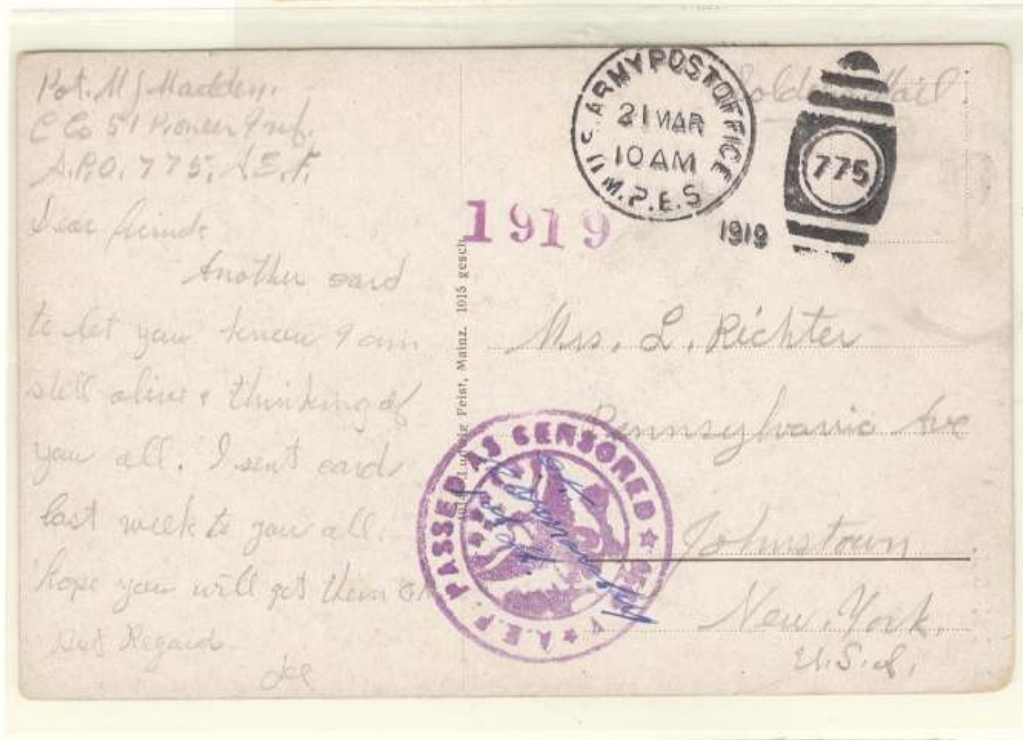 Pvt. M J Madden.
C Co 51 Pioneer Inf.
A.P.O. 775, A.E.F.
Dear friends
Another card
to let you know I am
still alive & thinking of
you all. I sent cards
last week to you all.
hope you will get them
Best Regards
Joe
Soldiers Mail
U.S. ARMY POST OFFICE
21 MAR
10 AM
M.P.E.S
1919
775
1919
Ludwig Feist, Mainz. 1915 gesch.
Mrs. L. Richter
Pennsylvania Ave
Johnstown
New York.
U.S.A.
A.E.F. PASSED AS CENSORED